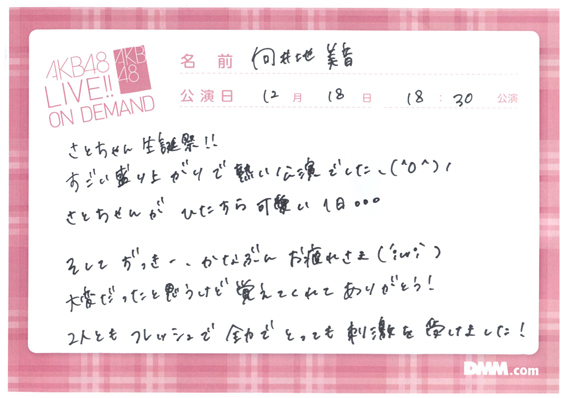 AKB48
LIVE!!
ON DEMAND
AKB
48
名前 向井地 美音
公演日 12月 18日 18:30 公演
さとちゃん生誕祭!!
すごい盛り上がりで熱い公演でした、(^o^)ノ
さとちゃんが ひたすら可愛い1日。。。
そして ずっきー、かなぶん お疲れさま(´;ω;`)
大変だったと思うけど覚えてくれてありがとう!
2人とも フレッシュで 全力で とっても 刺激を 受けました!
DMM.com